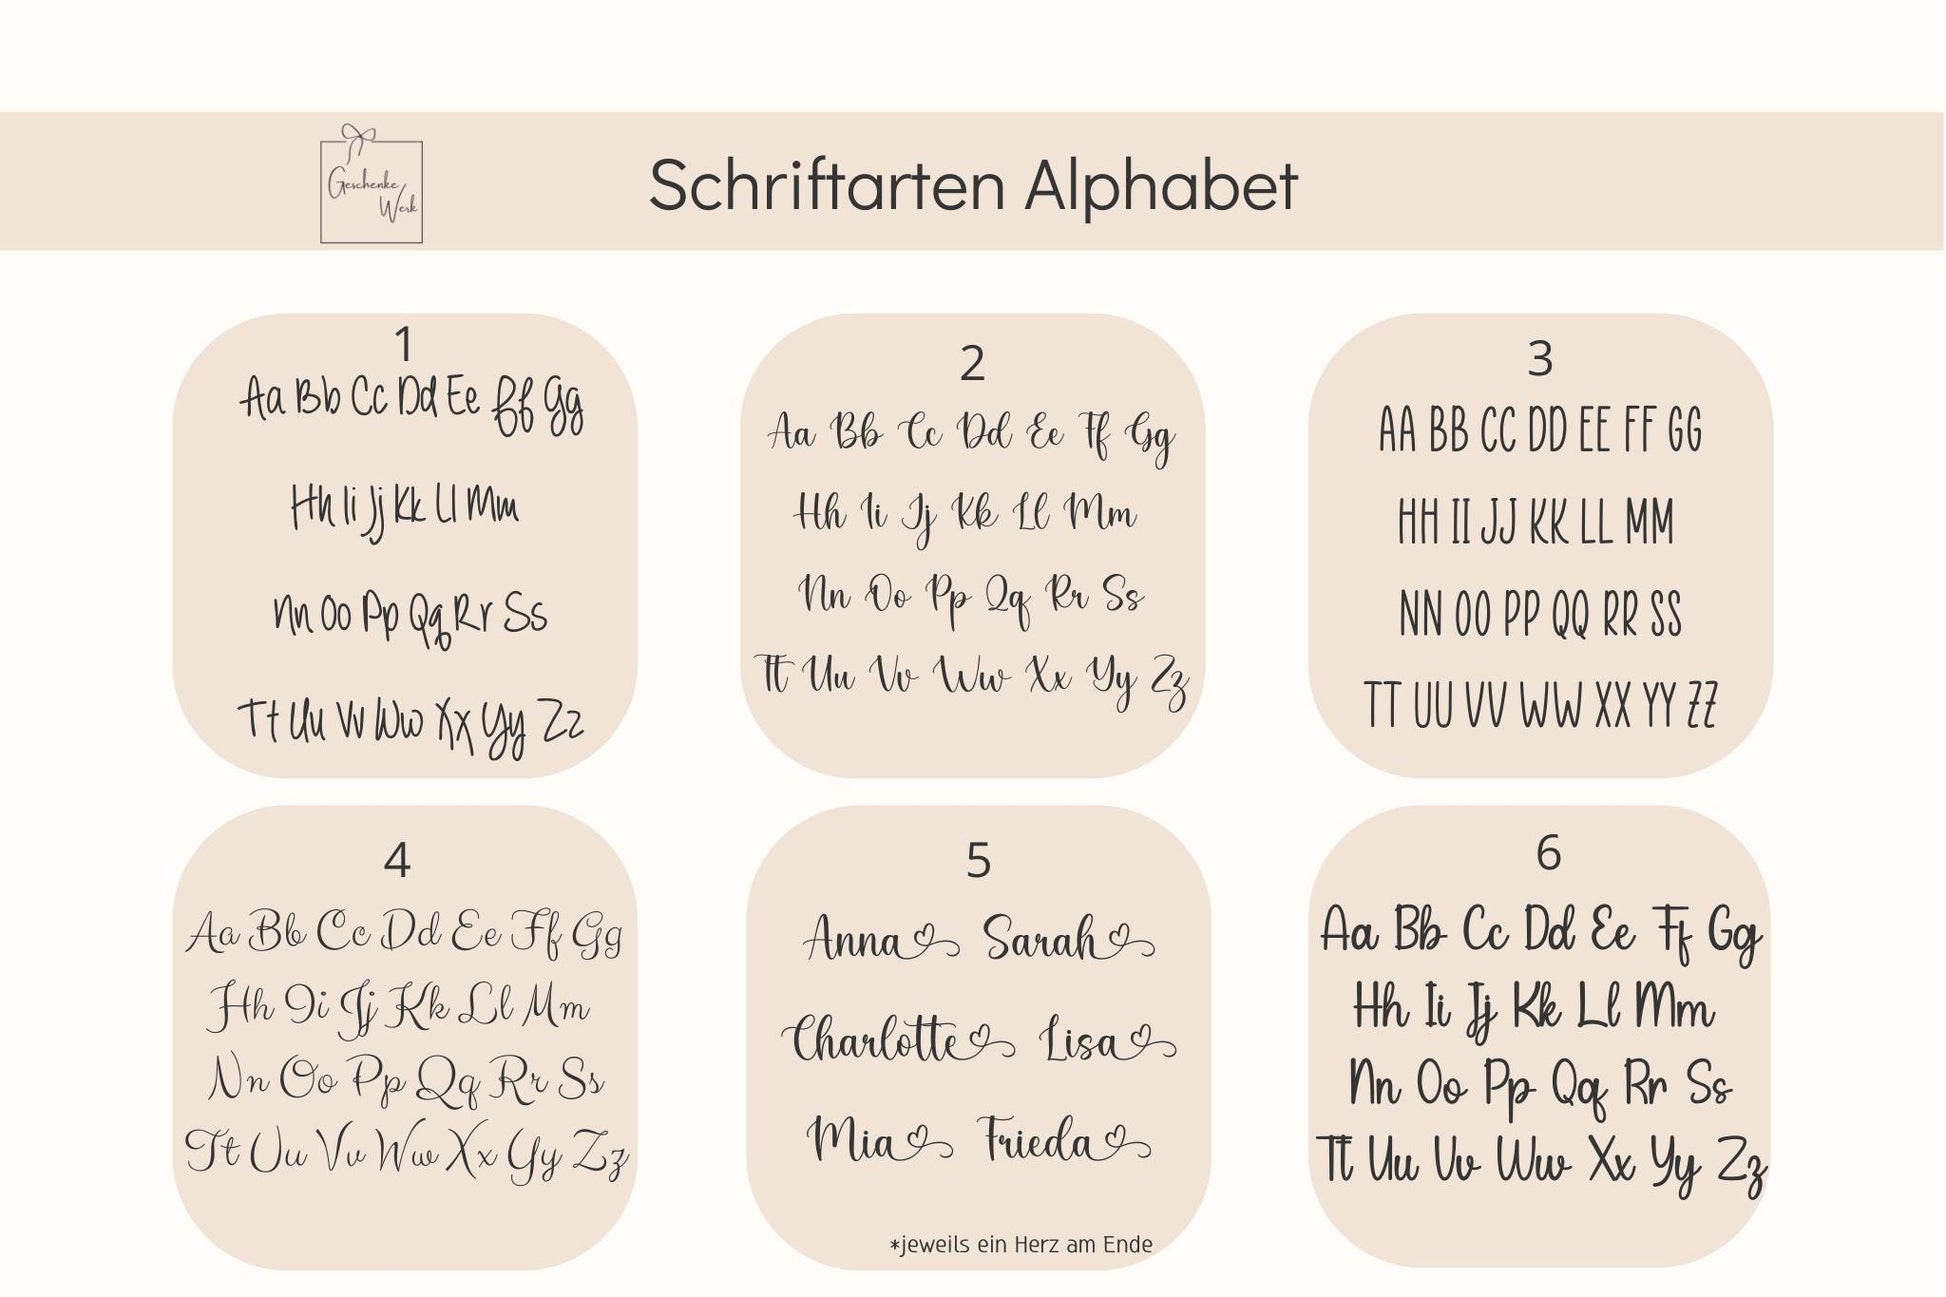 Geschenke
Werk
Schriftarten Alphabet
1
Aa Bb Cc Dd Ee Ff Gg
Hh Ii Jj Kk Ll Mm
Nn Oo Pp Qq Rr Ss
Tt Uu Vv Ww Xx Yy Zz
2
Aa Bb Cc Dd Ee Ff Gg
Hh Ii Jj Kk Ll Mm
Nn Oo Pp Qq Rr Ss
Tt Uu Vv Ww Xx Yy Zz
3
AA BB CC DD EE FF GG
HH II JJ KK LL MM
NN OO PP QQ RR SS
TT UU VV WW XX YY ZZ
4
Aa Bb Cc Dd Ee Ff Gg
Hh Ii Jj Kk Ll Mm
Nn Oo Pp Qq Rr Ss
Tt Uu Vv Ww Xx Yy Zz
5
Anna Sarah
Charlotte Lisa
Mia Frieda
*jeweils ein Herz am Ende
6
Aa Bb Cc Dd Ee Ff Gg
Hh Ii Jj Kk Ll Mm
Nn Oo Pp Qq Rr Ss
Tt Uu Vv Ww Xx Yy Zz